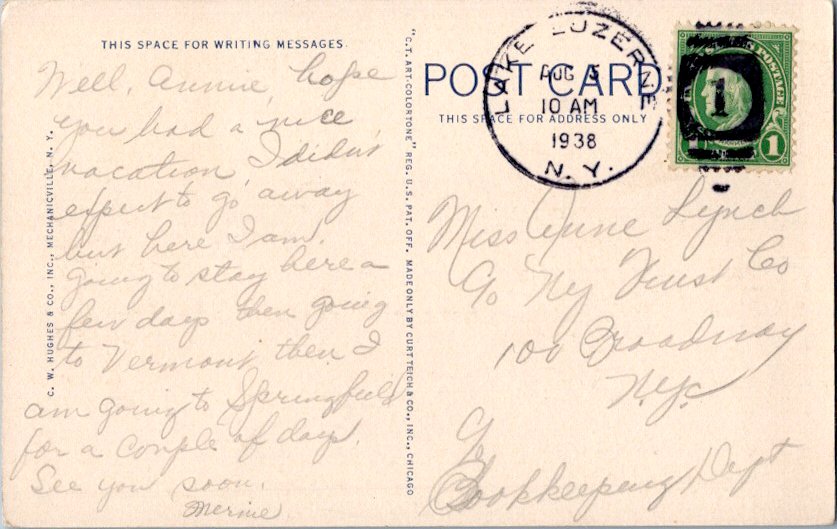 THIS SPACE FOR WRITING MESSAGES
Well, Annie, hope
you had a nice
vacation, I didn't
expect to go away
but here I am.
Going to stay here a
few days then going
to Vermont, then I
am going to Springfield
for a couple of days.
See you soon.
Merine
C. W. HUGHES & CO., INC., MECHANICVILLE, N. Y.
"C.T. ART-COLORTONE" REG. U.S. PAT. OFF. MADE ONLY BY CURT TEICH & CO., INC., CHICAGO
POST CARD
THIS SPACE FOR ADDRESS ONLY
LAKE LUZERNE
AUG 5
10 AM
1938
N. Y.
1
1
Miss Anne Lynch
c/o NY Trust Co
100 Broadway
N.Y.C.
Bookkeeping Dept